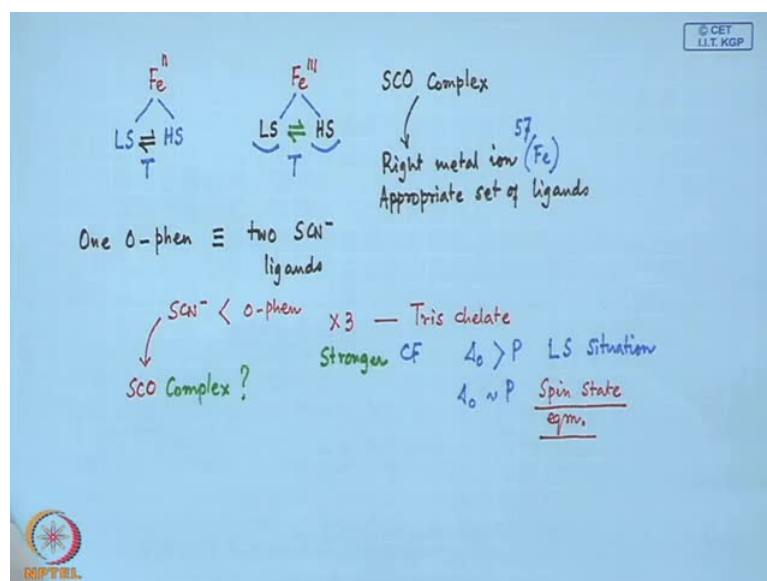 © CET
I.I.T. KGP
Fe^II
LS ⇌ HS
T
Fe^III
LS ⇌ HS
T
SCO Complex
Right metal ion (⁵⁷Fe)
Appropriate set of ligands
One O-phen ≡ two SCN⁻
ligands
SCN⁻ < O-phen
SCO Complex ?
X3 — Tris chelate
Stronger CF Δ₀ > P LS Situation
Δ₀ ~ P Spin State
eqm.
NPTEL